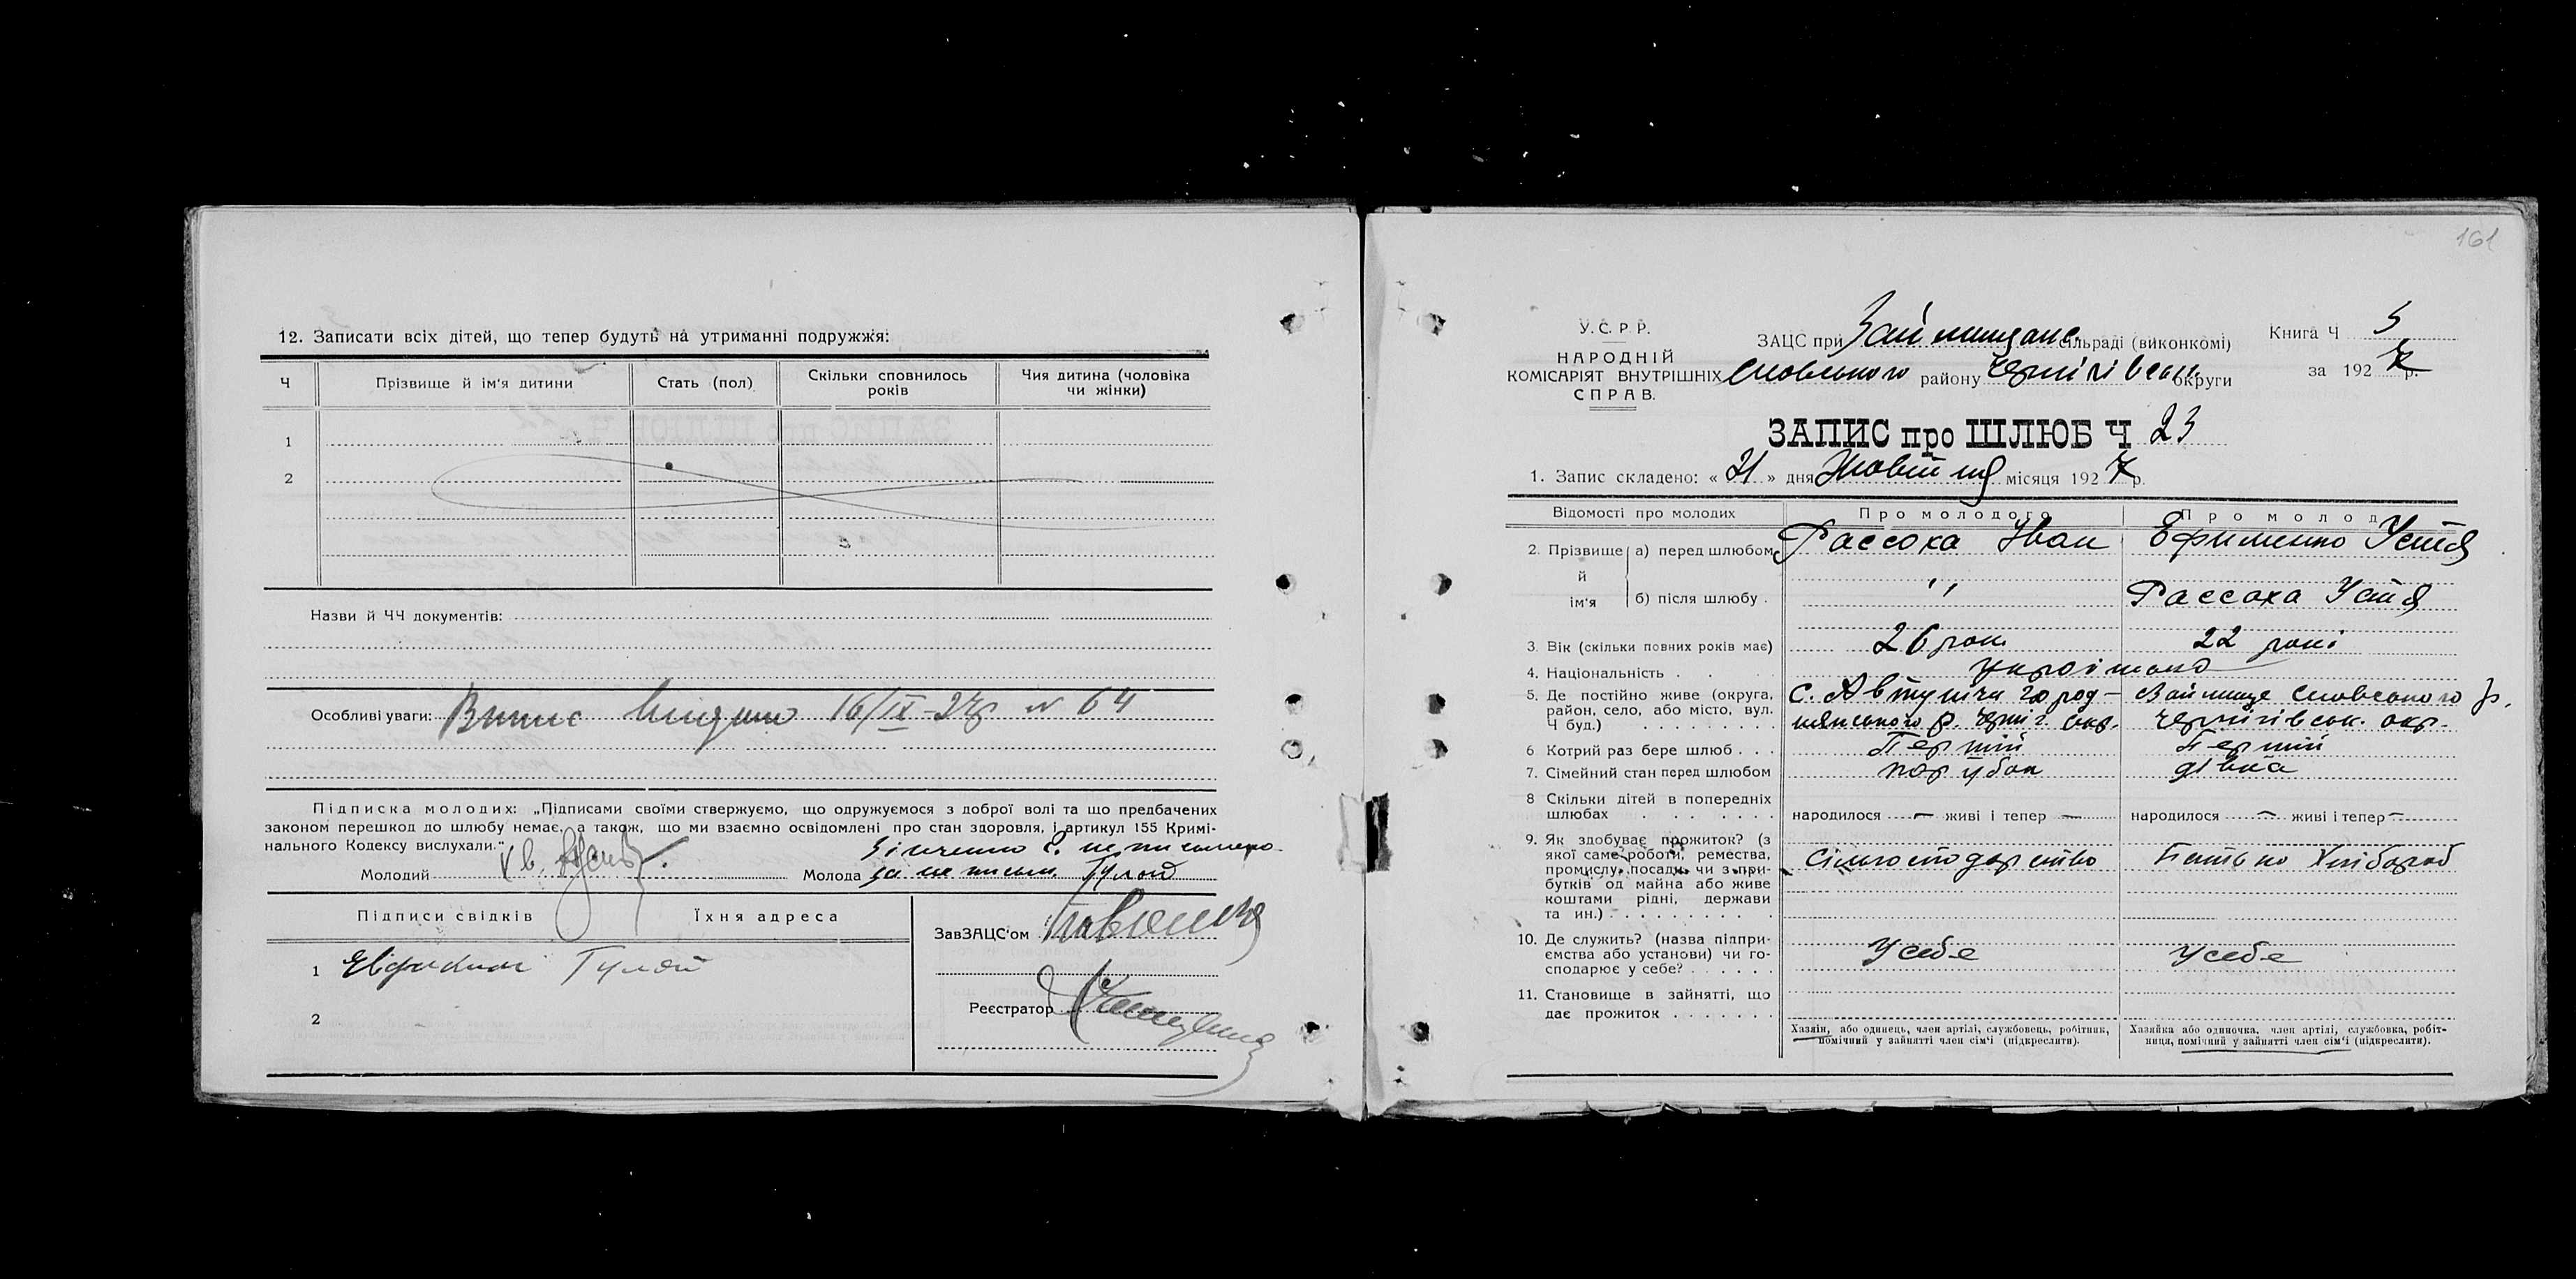 12. Записати всіх дітей, що тепер будуть на утриманні подружжя:
Ч Прізвище й ім'я дитини Стать (пол) Скільки сповнилось років Чия дитина (чоловіка чи жінки)
1
2
Назви й ЧЧ документів:
Особливі уваги: 16/IX-27р N 64
Підписка молодих: „Підписами своїми ствержуємо, що одружуємося з доброї волі та що предбачених
законом перешкод до шлюбу немає, а також, що ми взаємно освідомлені про стан здоровля, і артикул 155 Кримі-
нального Кодексу вислухали."
Молодий Молода
Підписи свідків Їхня адреса
ЗавЗАЦС'ом
1 Гулей
Реєстратор
2
161
У.С.Р.Р.
НАРОДНІЙ
КОМІСАРІЯТ ВНУТРІШНІХ
СПРАВ.
ЗАЦС при Займищанс. сільраді (виконкомі)
Сновського району Чернігівськ. округи
Книга Ч 5
за 1927 р.
ЗАПИС про ШЛЮБ Ч 23
1. Запис складено: « 21 » дня Жовтня місяця 1927 р.
Відомості про молодих Про молодого Про молоду
2. Прізвище й ім'я а) перед шлюбом Рассоха Іван Ефименко Устя
б) після шлюбу . " Рассоха Устя
3. Вік (скільки повних років має) 26 рок. 22 рокі
4. Національність . украінска
5. Де постійно живе (округа, район, село, або місто, вул. Ч буд.) с. Автуничи город-нянського р. Черніг. окр. Займище Сновського р. Чернігівськ. окр.
6 Котрий раз бере шлюб . . . Перший Перший
7. Сімейний стан перед шлюбом парубок дівка
8 Скільки дітей в попередніх шлюбах народилося — живі і тепер — народилося — живі і тепер —
9. Як здобуває прожиток? (з якої саме роботи, ремества, промислу, посади чи з прибутків од майна або живе коштами рідні, держави та ин.) Сільгосподарство Батько Хлібороб
10. Де служить? (назва підприємства або установи) чи господарює у себе? У себе У себе
11. Становище в зайнятті, що дає прожиток
Хазяїн, або одинець, член артілі, службовець, робітник, помічний у зайнятті член сім'ї (підкреслити).
Хазяйка або одиночка, член артілі, службовка, робітниця, помічний у зайнятті член сім'ї (підкреслити).